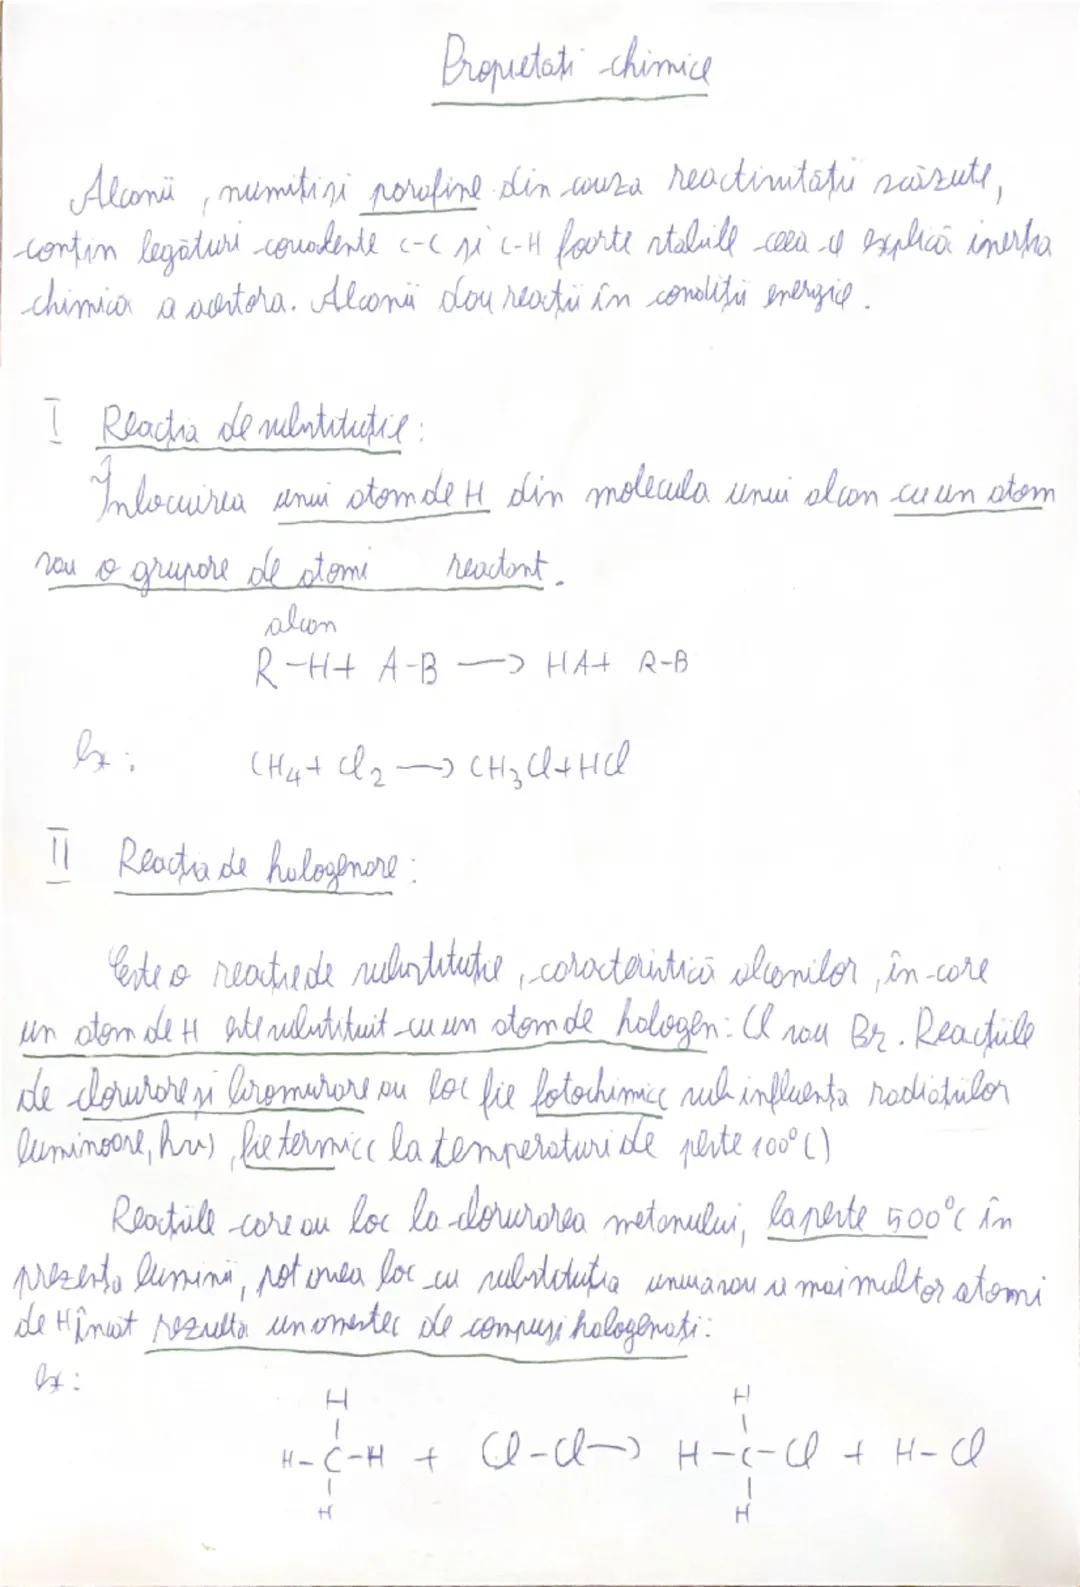 Proprietăți chimice
Alcanii, numiți și parafine din cauza reactivității scăzute,
conțin legături covalente C-C și C-H foarte stabile ceea ce explică inerția
chimică a acestora. Alcanii dau reacții în condiții energice.
I Reacția de substituție:
Înlocuirea unui atom de H din molecula unui alcan cu un atom
sau o grupare de atomi reactant.
alcan
R-H+ A-B → HA+ R-B
Ex:
CH₄+ Cl₂ → CH₃Cl+HCl
II Reacția de halogenare:
Este o reacție de substituție, caracteristică alcanilor, în care
un atom de H este substituit cu un atom de halogen: Cl sau Br. Reacțiile
de clorurare și bromurare au loc fie fotochimic( sub influența radiațiilor
luminoare, hν), fie termic( la temperaturi de peste 100°C)
Reacțiile care au loc la clorurarea metanului, la peste 500°C în
prezența luminii, pot avea loc cu substituția unuia sau a mai multor atomi
de H încât rezultă un amestec de compuși halogenați:
Ex:
H H
H-C-H + Cl-Cl→ H-C-Cl + H-Cl
H H